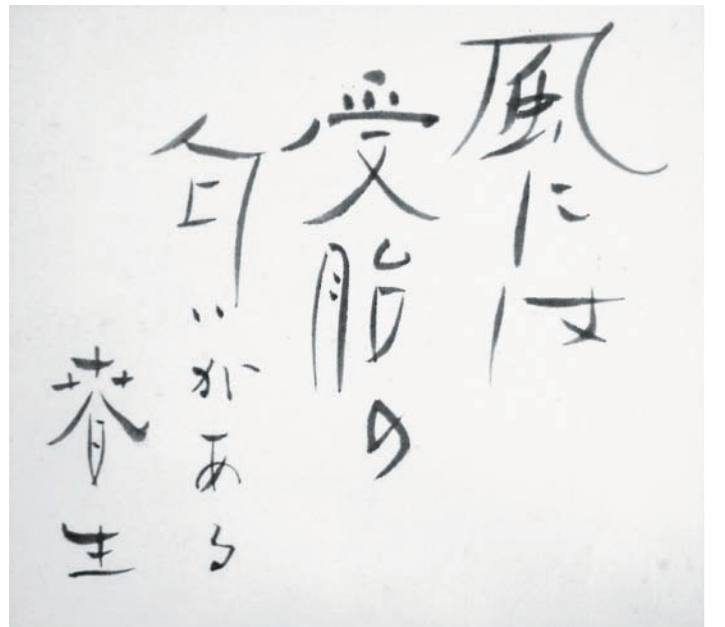 風には
受胎の
匂いがある
春生